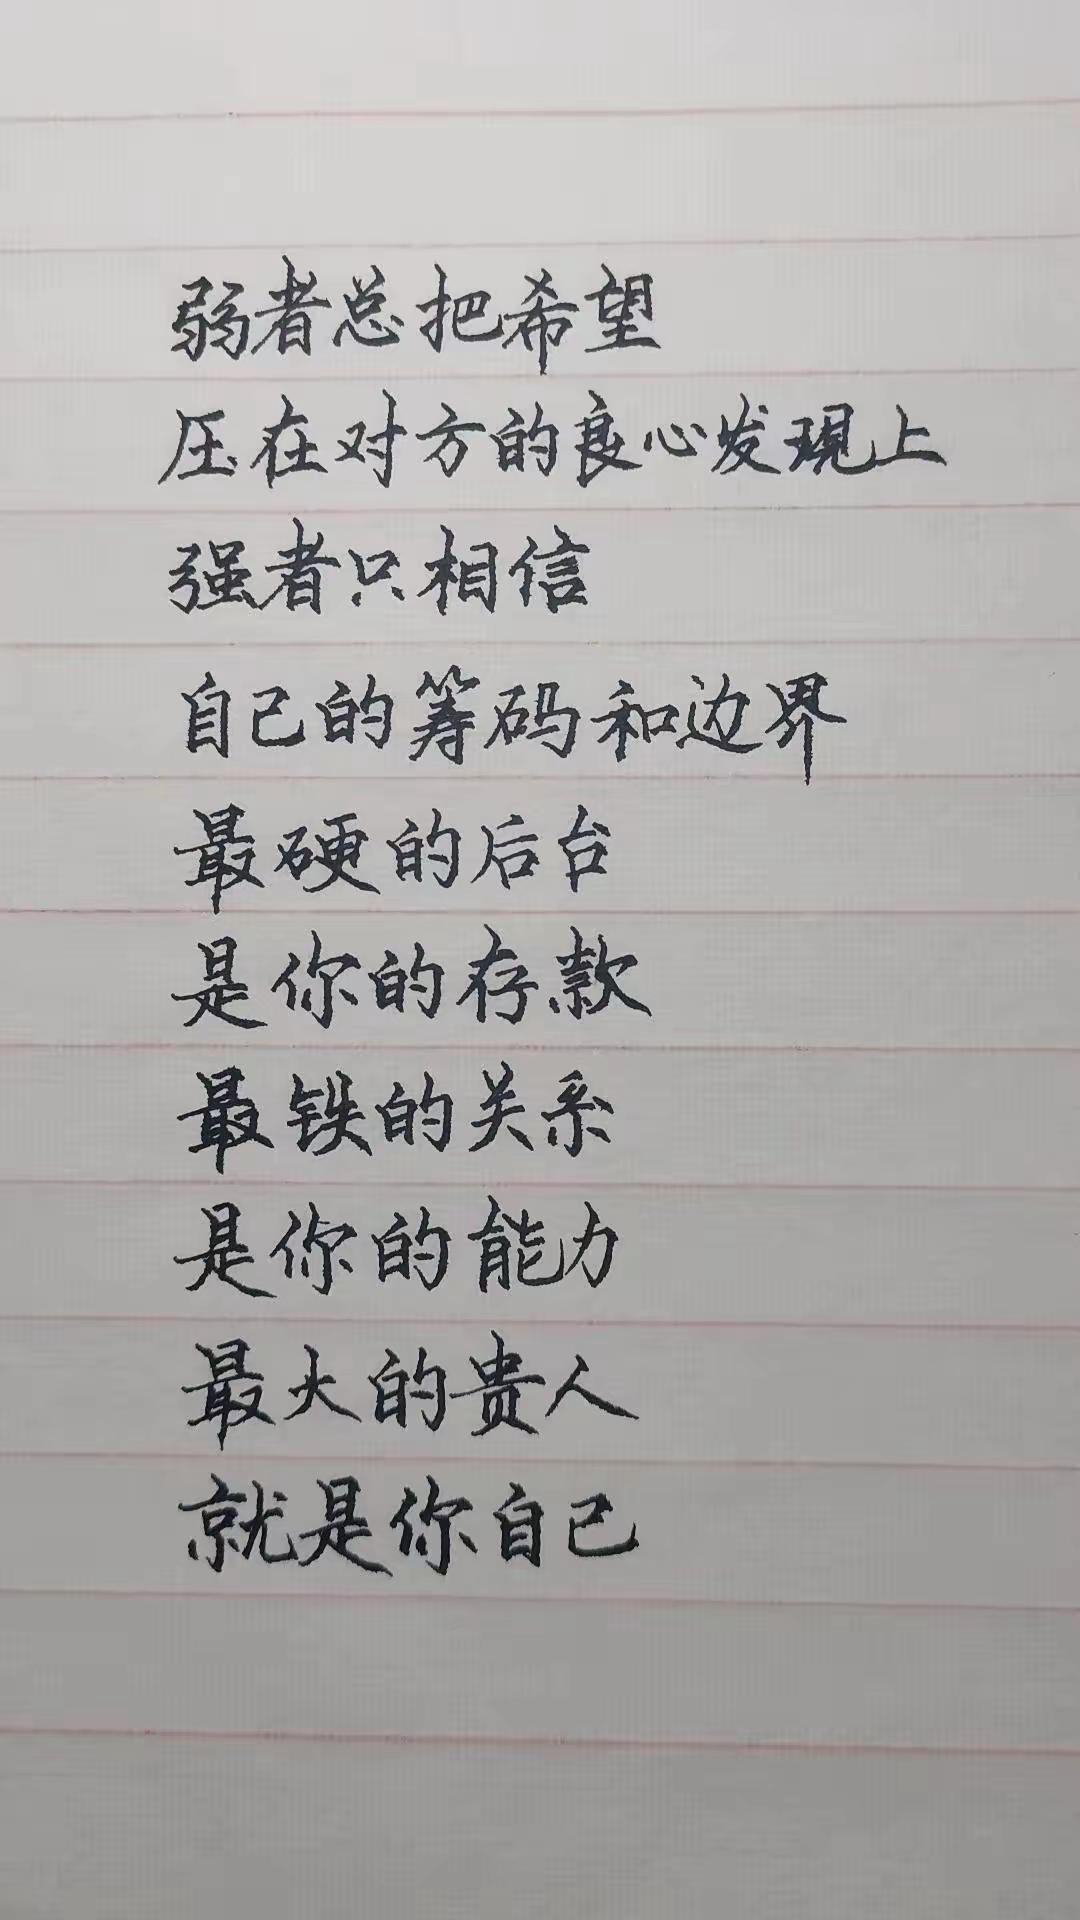 弱者总把希望
压在对方的良心发现上
强者只相信
自己的筹码和边界
最硬的后台
是你的存款
最铁的关系
是你的能力
最大的贵人
就是你自己